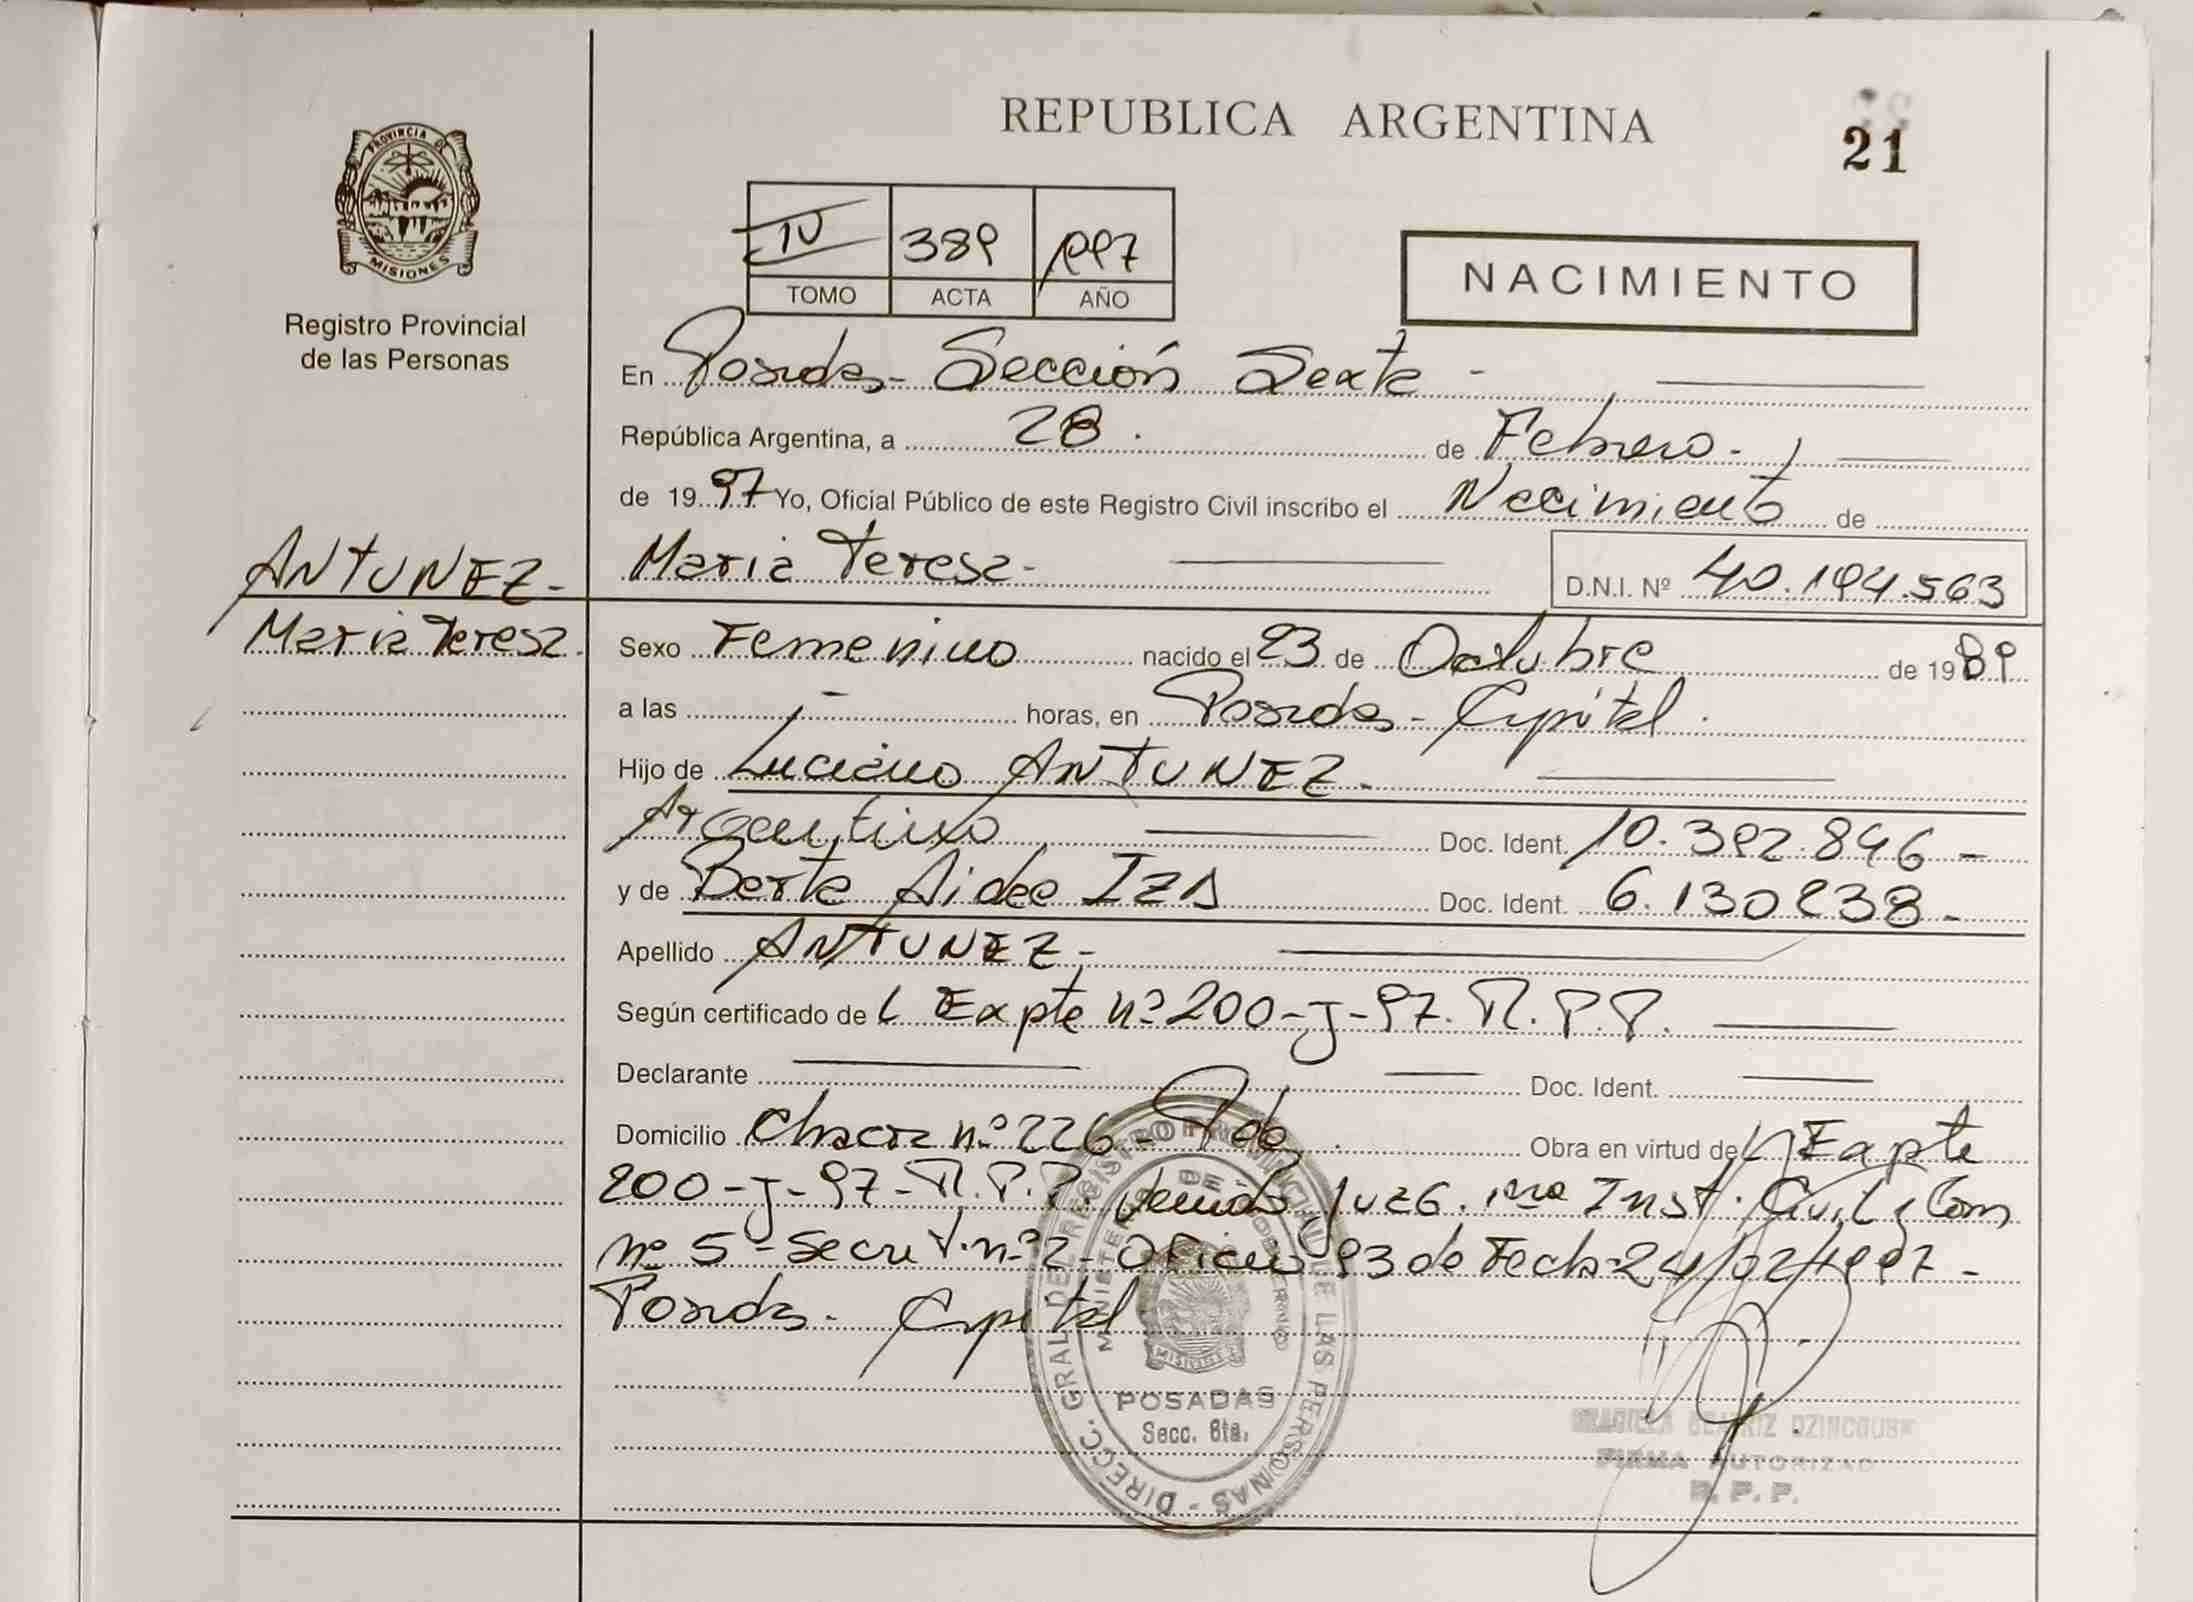 REPUBLICA ARGENTINA
21
PROVINCIA DE
MISIONES
Registro Provincial
de las Personas
IV 389 1997
TOMO ACTA AÑO
NACIMIENTO
En Posadas - Sección Sexta -
República Argentina, a 28 . de Febrero. -
de 1997 Yo, Oficial Público de este Registro Civil inscribo el Nacimiento de
ANTUNEZ -
Maria Teresa.
Maria Teresa - D.N.I. Nº 40.194.563
Sexo Femenino nacido el 23 de Octubre de 1989
a las - horas, en Posadas - Capital .
Hijo de Luciano ANTUNEZ -
Argentino Doc. Ident. 10.392.846 -
y de Berta Aidee IZA Doc. Ident. 6.130238 -
Apellido ANTUNEZ, -
Según certificado de L Expte nº 200-J-97. R.P.P.
Declarante Doc. Ident.
Domicilio Chacra nº 226 - Pdas . Obra en virtud de L Expte
200-J-97-R.P.P. Juzg. 1ra Inst. Civil y Com
nº 5 - Secret. nº 2 - Oficio 93 de Fecha 24/02/1997 -
Posadas - Capital
DIRECC. GRAL. DEL REGISTRO PROVINCIAL DE LAS PERSONAS -
MINISTERIO DE GOBIERNO
MISIONES
POSADAS
Secc. 6ta.
GRACIELA BEATRIZ
FIRMA AUTORIZAD
R. P. P.